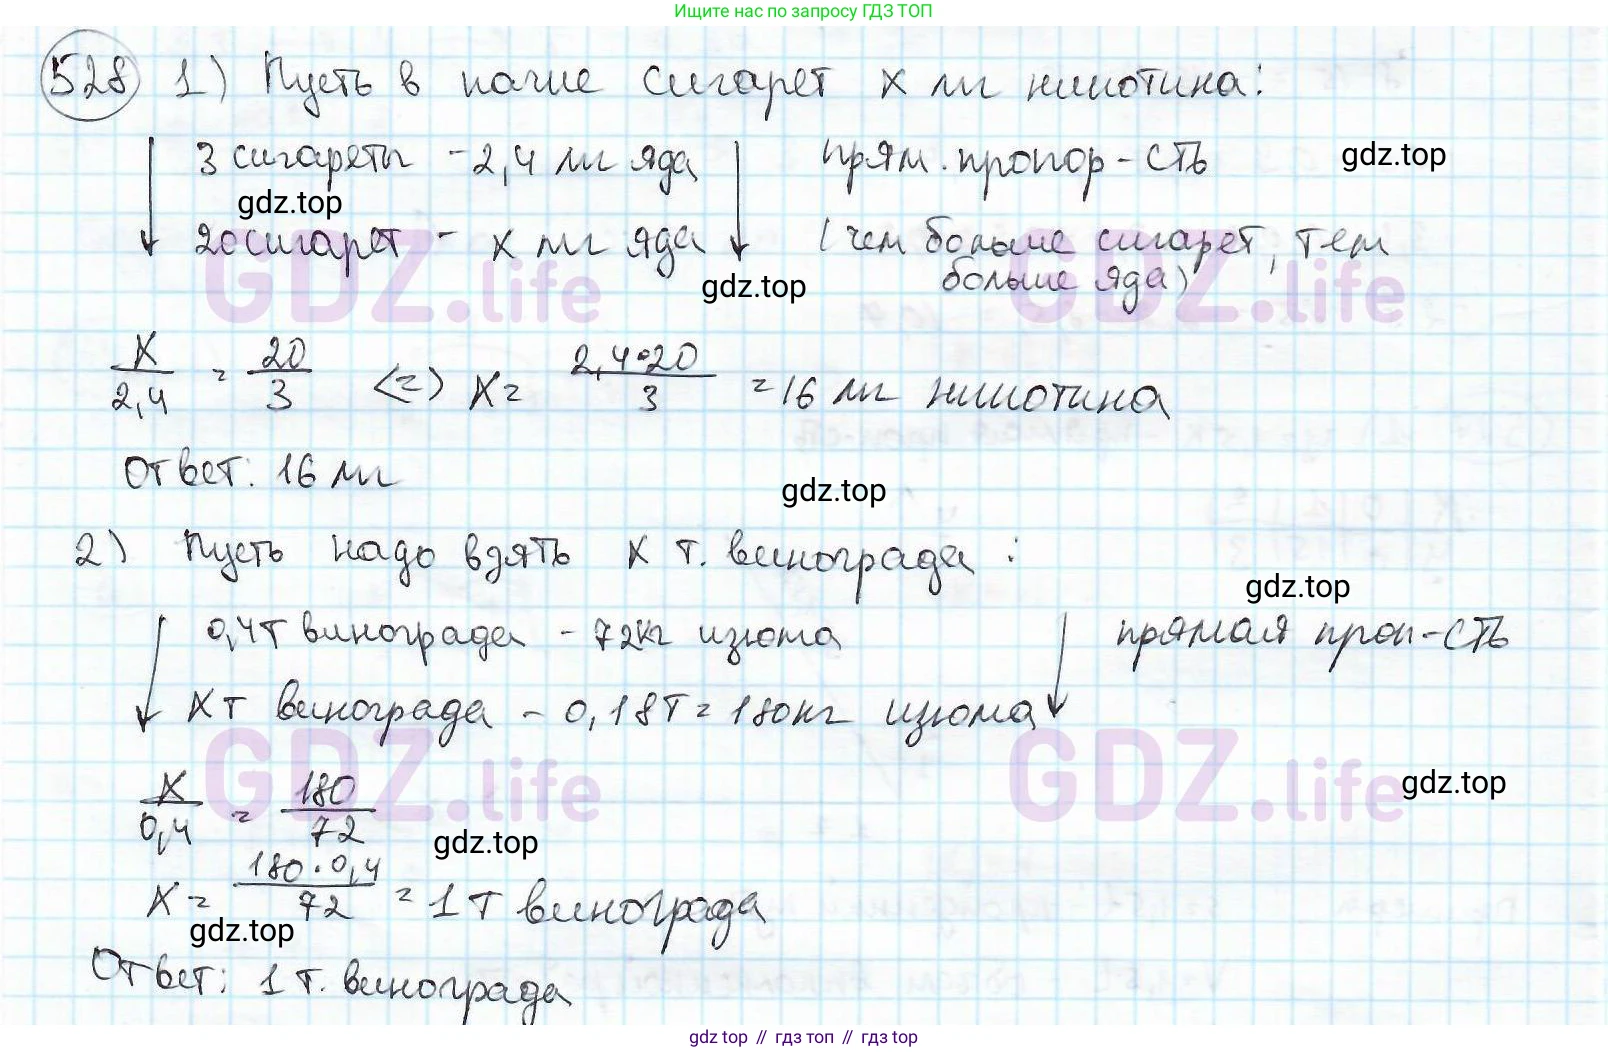 Ищите нас по запросу ГДЗ ТОП
528 1) Пусть в пачке сигарет x мг никотина:
3 сигареты - 2,4 мг яда прям. пропор-сть gdz.top
gdz.top
20 сигарет - x мг яда (чем больше сигарет, тем
больше яда)
gdz.top
GDZ.life GDZ.life
x/2,4 = 20/3 <=> x = 2,4•20/3 = 16 мг никотина
Ответ: 16 мг
gdz.top
2) Пусть надо взять x т. винограда:
gdz.top
0,4т винограда - 72кг изюма прямая проп-сть
x т винограда - 0,18т = 180кг изюма
GDZ.life GDZ.life
x/0,4 = 180/72
gdz.top
gdz.top
x = 180•0,4/72 = 1 т винограда
gdz.top
Ответ: 1 т. винограда
gdz.top // гдз топ // gdz.top